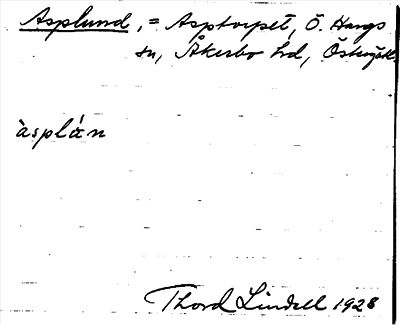 Asplund, = Asptorpet, Ö. Hargs
sn, Åkerbo hd, Östergötl.
àsplán
Thord Lindell 1928